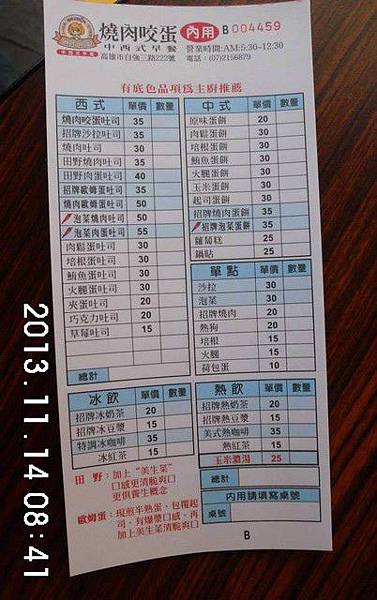 燒肉咬蛋 內用 B 004459
中西式早餐
營業時間:AM:5:30-12:30
高雄市自強三路222號 電話:(07)2156879
有底色品項為主廚推薦
西式 單價 數量
燒肉咬蛋吐司 35
招牌沙拉吐司 35
燒肉吐司 30
田野燒肉吐司 35
田野肉蛋吐司 40
招牌歐姆蛋吐司 35
燒肉歐姆蛋吐司 50
泡菜燒肉吐司 50
泡菜肉蛋吐司 55
肉鬆蛋吐司 30
培根蛋吐司 30
鮪魚蛋吐司 30
火腿蛋吐司 30
夾蛋吐司 20
巧克力吐司 20
草莓吐司 15
總計
中式 單價 數量
原味蛋餅 20
肉鬆蛋餅 30
培根蛋餅 30
鮪魚蛋餅 30
火腿蛋餅 30
玉米蛋餅 30
起司蛋餅 30
招牌燒肉蛋餅 35
招牌泡菜蛋餅 35
蘿蔔糕 25
鍋貼 25
單點 單價 數量
沙拉 30
泡菜 30
招牌燒肉 30
熱狗 20
培根 15
火腿 15
荷包蛋 10
冰飲 單價 數量
招牌冰奶茶 20
招牌冰豆漿 15
特調冰咖啡 35
冰紅茶 15
熱飲 單價 數量
招牌熱奶茶 20
招牌熱豆漿 15
美式熱咖啡 35
熱紅茶 15
玉米濃湯 25
總計
田 野:加上"美生菜"
口感更清脆爽口
更俱養生概念
歐姆蛋:現煎半熟蛋、包覆起
司、有爆漿口感、再
加上美生菜清脆爽口
內用請填寫桌號
桌號
B
2013.11.14 08:41